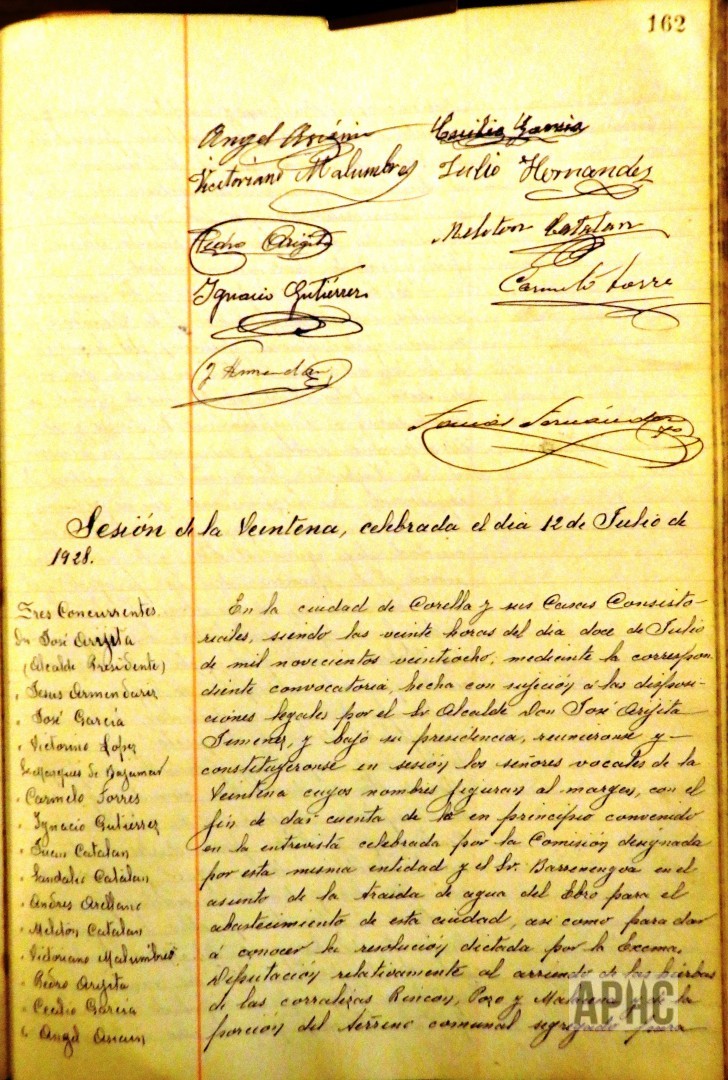 162
Angel Asiain
Cecilio García
Victoriano Malumbres
Julio Hernandez
Pedro Arigita
Meliton Catalan
Ignacio Gutiérrez
Carmelo Torre
Tomás Fernández
Sesión de la Veintena, celebrada el dia 12 de Julio de
1928.
Sres Concurrentes.
Dn José Arigita
(Alcalde Presidente)
" Jesus Armendariz
" José García
" Victorino López
Sr Marques de Bajamar
" Carmelo Torres
" Ignacio Gutierrez
" Juan Catalan
" Sandalio Catalan
" Andres Arellano
" Melitón Catalan
" Victoriano Malumbres
" Pedro Arigita
" Cecilio García
" Angel Asiain
En la ciudad de Corella y sus Casas Consisto-
riales, siendo las veinte horas del dia doce de Julio
de mil novecientos veintiocho, mediante la correspon
diente convocatoria, hecha con sujeción á las disposi-
ciones legales por el Sr. Alcalde Don José Arigita
Jimenez, y bajo su presidencia, reunieronse y -
constituyeronse en sesión los señores vocales de la
Veintena cuyos nombres figuran al margen, con el
fin de dar cuenta de lo en principio convenido
en la entrevista celebrada por la Comisión designada
por esta misma entidad y el Sr. Barrenengoa en el
asunto de la traida de agua del Ebro para el
abastecimiento de esta ciudad, asi como para dar
á conocer la resolución dictada por la Excma.
Diputación relativamente al arriendo de las hierbas
de las corralizas Rincon, Pozo y y de la
porción del terreno comunal segregado para
APHC